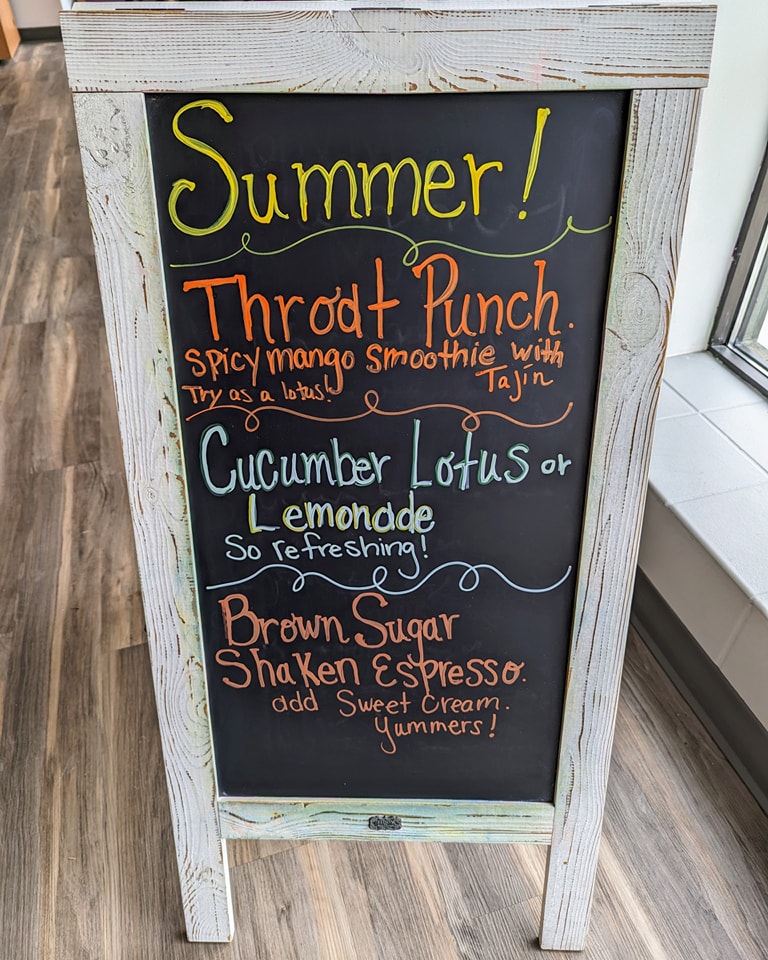 Summer!
Throat Punch.
spicy mango smoothie with
Tajín
Try as a lotus!
Cucumber Lotus or
Lemonade
So refreshing!
Brown Sugar
Shaken Espresso.
add Sweet Cream.
Yummers!